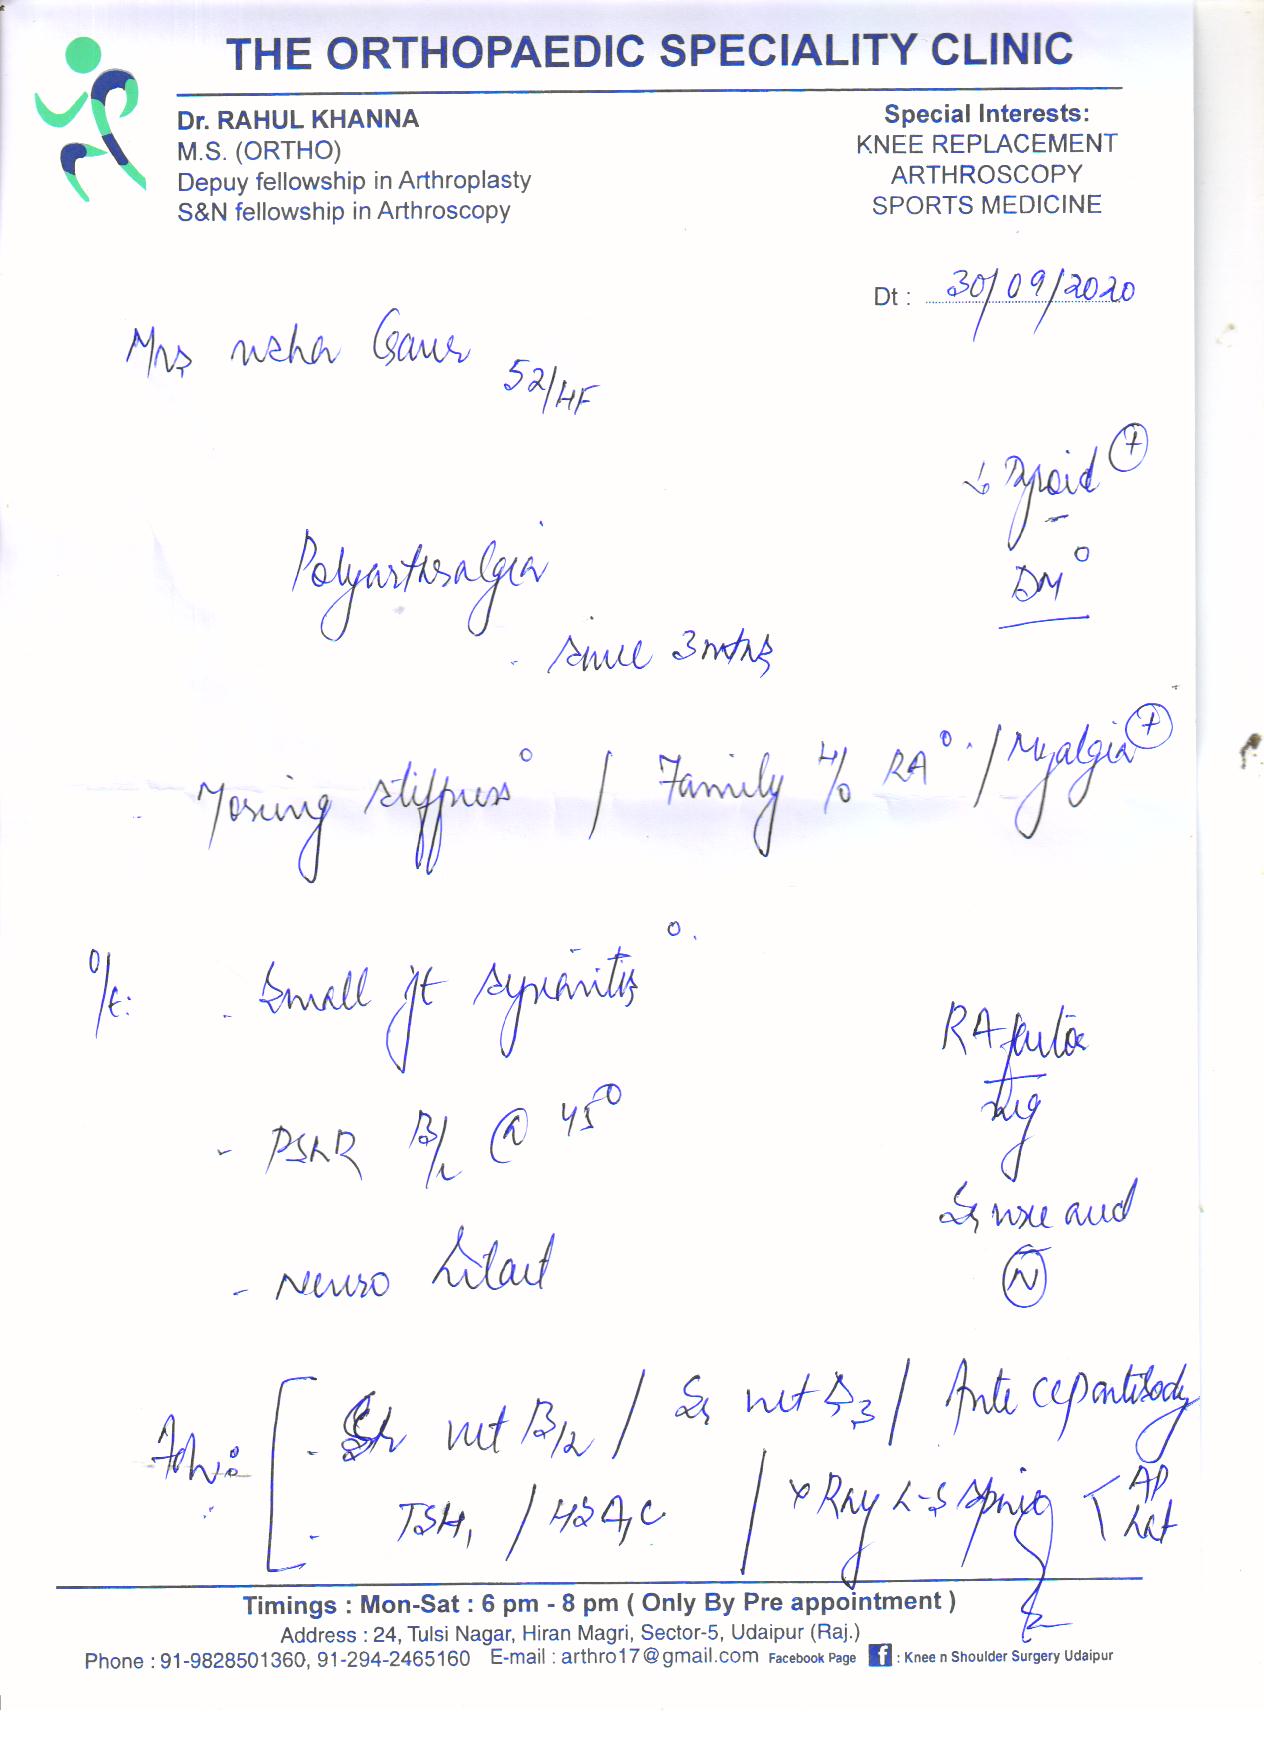 THE ORTHOPAEDIC SPECIALITY CLINIC
Dr. RAHUL KHANNA
M.S. (ORTHO)
Depuy fellowship in Arthroplasty
S&N fellowship in Arthroscopy
Special Interests:
KNEE REPLACEMENT
ARTHROSCOPY
SPORTS MEDICINE
Dt : 30/09/2020
Mrs Usha Gaur 52/HF
Thyroid +
DM °
Polyarthralgia
- since 3 mths
- Morning stiffness ° / Family H/o RA ° / Myalgia +
O/E: - Small jt synovitis °
- PSLR B/L @ 45°
- Neuro Intact
RA factor
neg
Sr uric acid
N
- Sr vit B12 / Sr vit D3 / Anti CCP antibody
- TSH, / HbA1C / X Ray L-S Spine AP
Lat
Timings : Mon-Sat : 6 pm - 8 pm ( Only By Pre appointment )
Address : 24, Tulsi Nagar, Hiran Magri, Sector-5, Udaipur (Raj.)
Phone : 91-9828501360, 91-294-2465160 E-mail : arthro17@gmail.com Facebook Page f : Knee n Shoulder Surgery Udaipur